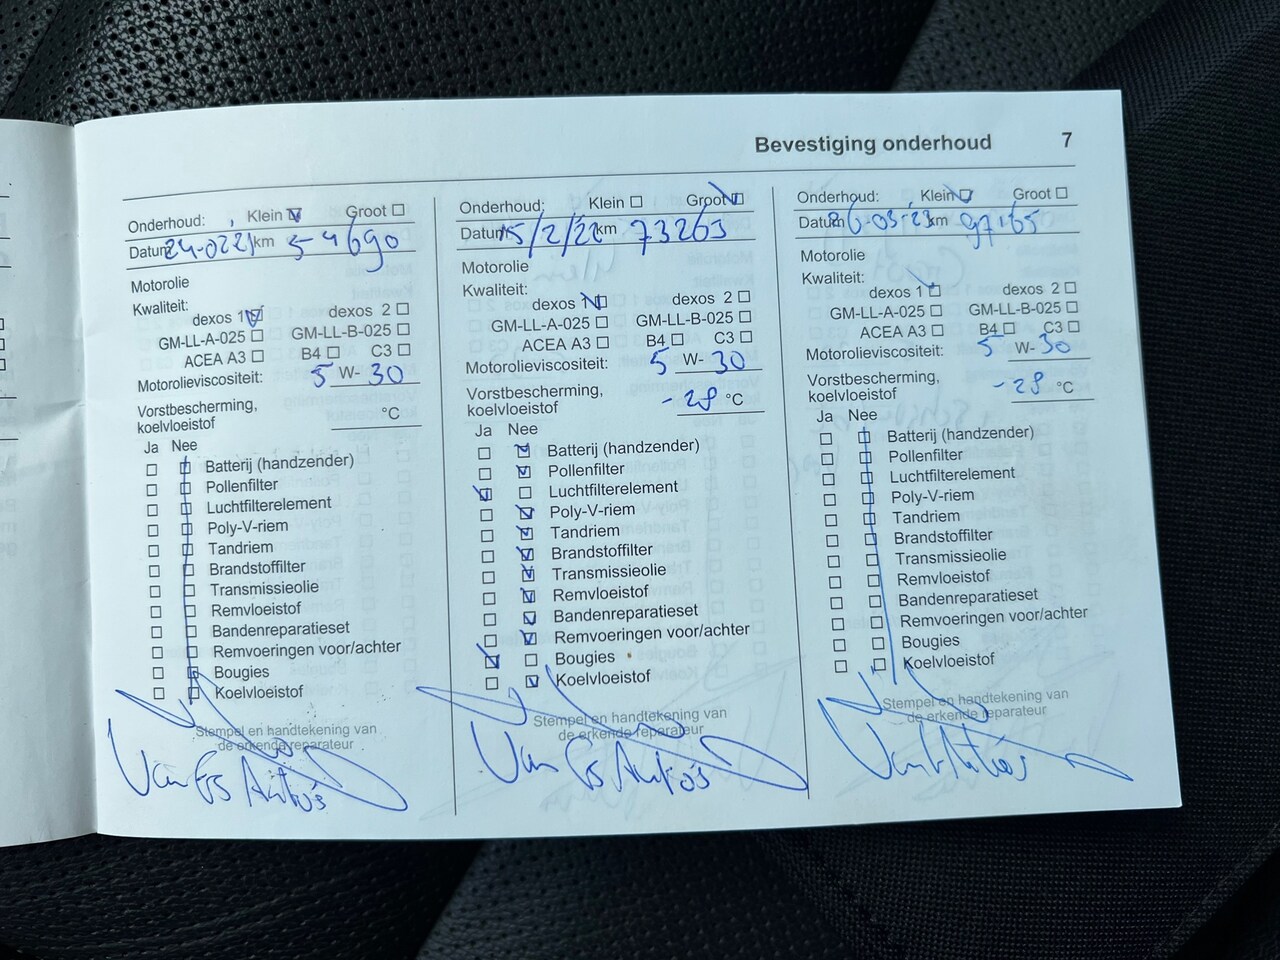 Bevestiging onderhoud 7
Onderhoud: Klein Groot
Datum 24-0221 km 54690
Motorolie
Kwaliteit:
dexos 1 dexos 2
GM-LL-A-025 GM-LL-B-025
ACEA A3 B4 C3
Motorolieviscositeit: 5 W- 30
Vorstbescherming,
koelvloeistof °C
Ja Nee
Batterij (handzender)
Pollenfilter
Luchtfilterelement
Poly-V-riem
Tandriem
Brandstoffilter
Transmissieolie
Remvloeistof
Bandenreparatieset
Remvoeringen voor/achter
Bougies
Koelvloeistof
Stempel en handtekening van
de erkende reparateur
Van Es Auto's
Onderhoud: Klein Groot
Datum 15/2/22 km 73263
Motorolie
Kwaliteit:
dexos 1 dexos 2
GM-LL-A-025 GM-LL-B-025
ACEA A3 B4 C3
Motorolieviscositeit: 5 W- 30
Vorstbescherming,
koelvloeistof -28 °C
Ja Nee
Batterij (handzender)
Pollenfilter
Luchtfilterelement
Poly-V-riem
Tandriem
Brandstoffilter
Transmissieolie
Remvloeistof
Bandenreparatieset
Remvoeringen voor/achter
Bougies
Koelvloeistof
Stempel en handtekening van
de erkende reparateur
Van Es Auto's
Onderhoud: Klein Groot
Datum 26-03-23 km 97165
Motorolie
Kwaliteit:
dexos 1 dexos 2
GM-LL-A-025 GM-LL-B-025
ACEA A3 B4 C3
Motorolieviscositeit: 5 W- 30
Vorstbescherming,
koelvloeistof -28 °C
Ja Nee
Batterij (handzender)
Pollenfilter
Luchtfilterelement
Poly-V-riem
Tandriem
Brandstoffilter
Transmissieolie
Remvloeistof
Bandenreparatieset
Remvoeringen voor/achter
Bougies
Koelvloeistof
Stempel en handtekening van
de erkende reparateur